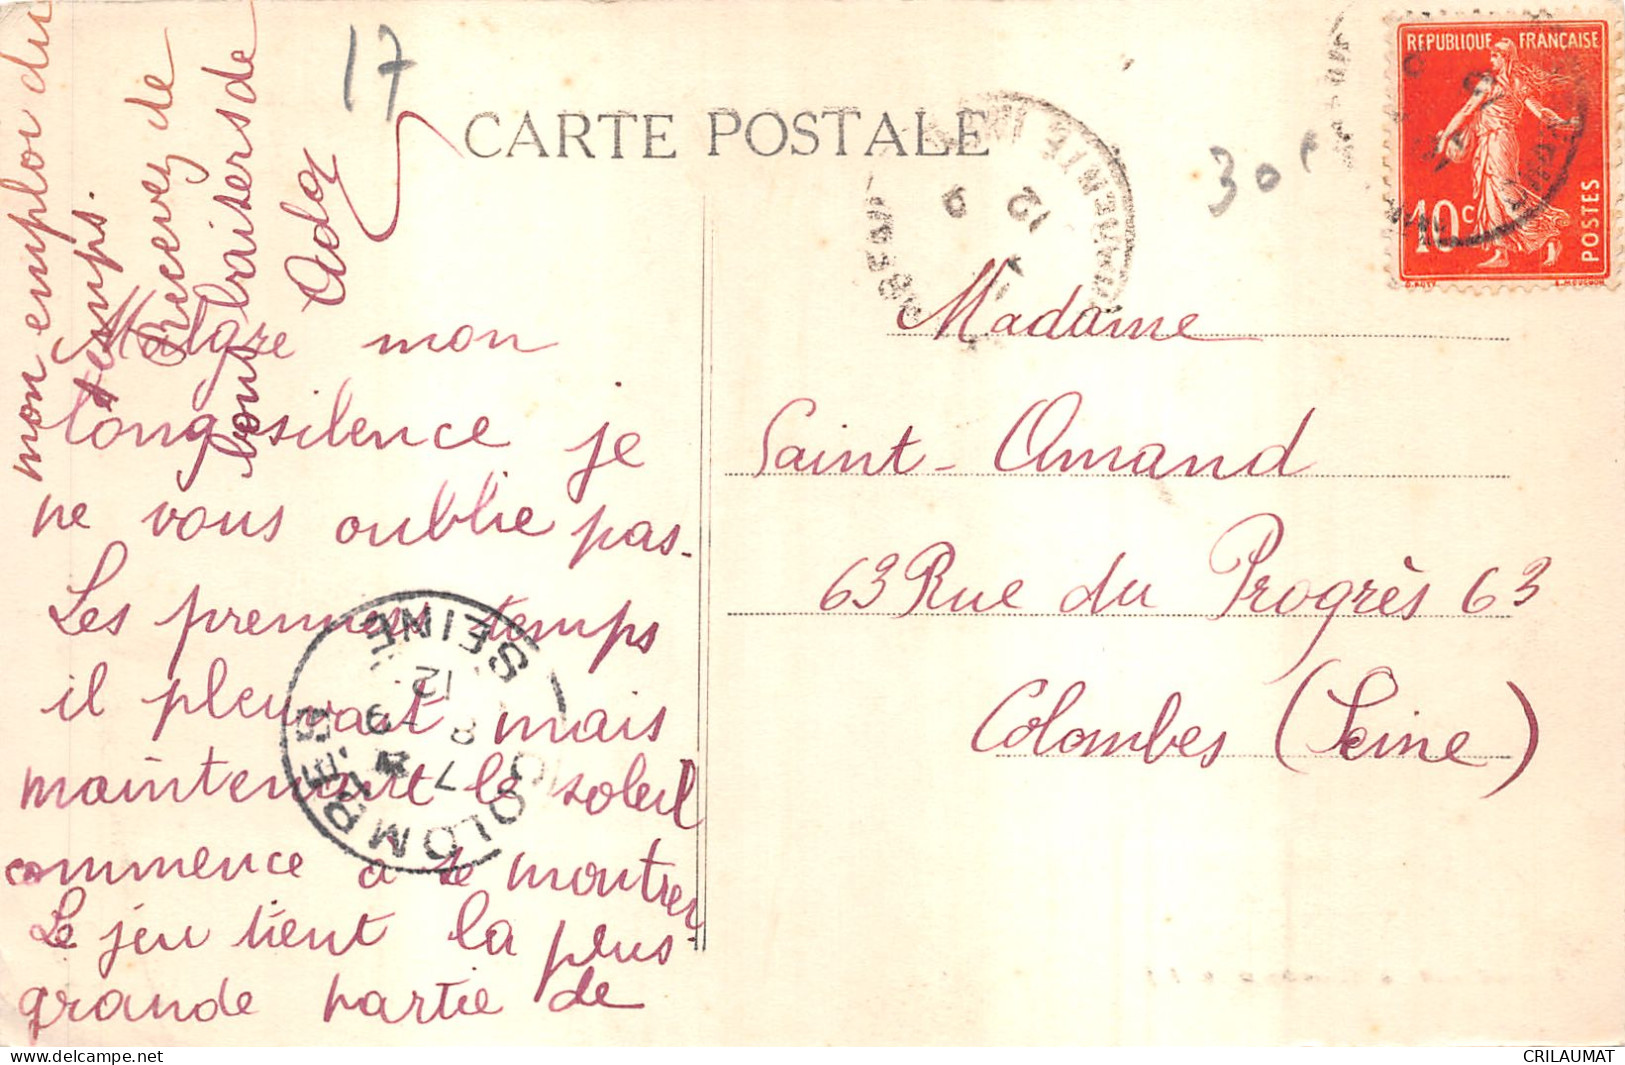 17
CARTE POSTALE
30c
REPUBLIQUE FRANÇAISE
10c
POSTES
Malgre mon
long silence je
ne vous oublie pas.
Les premiers temps
il pleuvait mais
maintenant le soleil
commence à se montrer
Le jeu tient la plus
grande partie de
mon emploi du
temps.
Recevez de
bons baisers de
Madame
Saint-Amand
63 Rue du Progrès 63
Colombes (Seine)
COLOMBES
SEINE
12
delcampe.net
CRILAUMAT